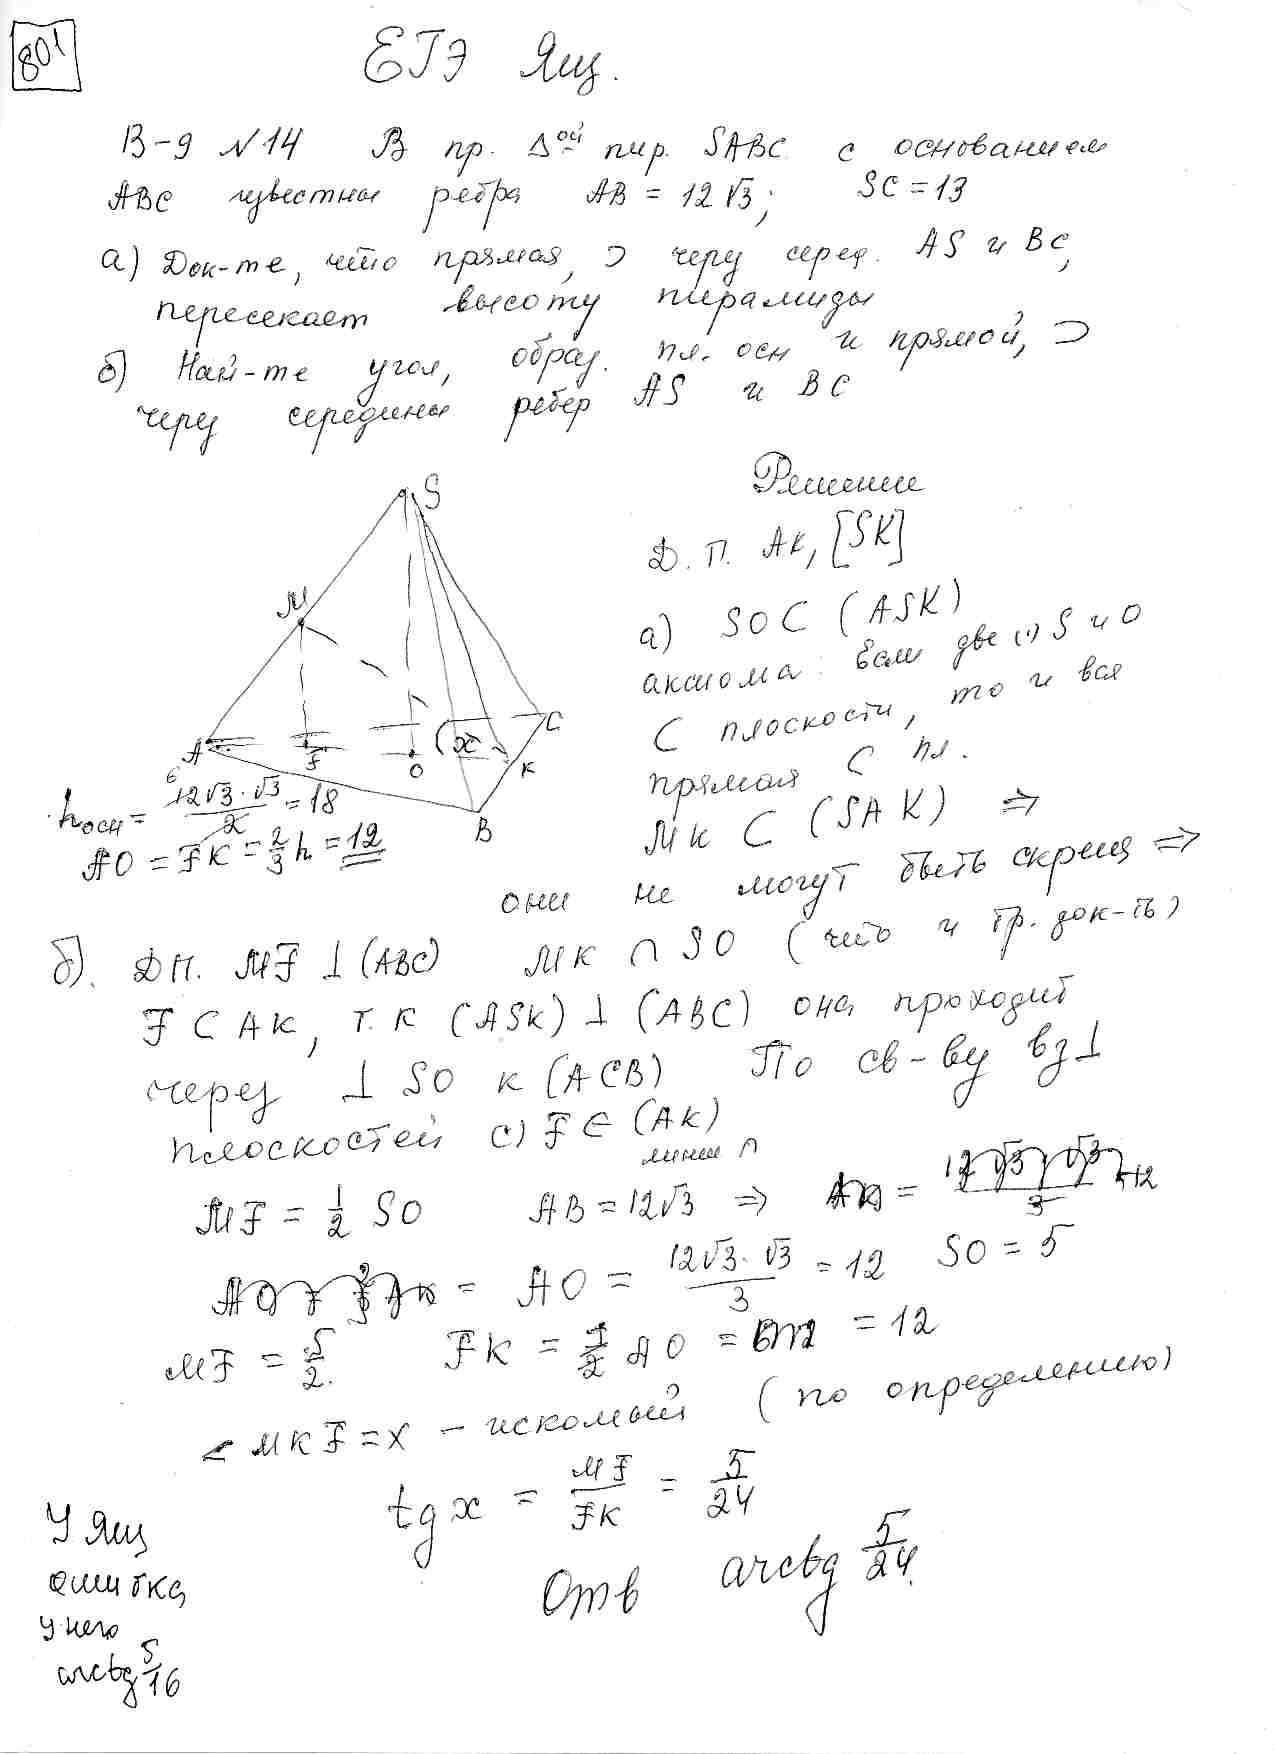 801
ЕГЭ Ящ.
В-9 №14 В пр. Δой пир. SABC с основанием
ABC известны ребра AB = 12√3; SC = 13
а) Док-те, что прямая, ⊃ через серед. AS и BC,
пересекает высоту пирамиды
б) Най-те угол, образ. пл. осн и прямой, ⊃
через середины ребер AS и BC
Решение
Д.П. AK, [SK]
а) SO ⊂ (ASK)
аксиома: Если две (·) S и O
⊂ плоскости, то и вся
прямая ⊂ пл.
MK ⊂ (SAK) ⇒
они не могут быть скрещ ⇒
MK ∩ SO (что и тр. док-ть)
S
M
A
F
O
x
K
C
B
hосн = 12√3·√3/2 = 18
6
AO = FK = 2/3 h = 12
б). ДП. MF ⊥ (ABC)
F ⊂ AK, т.к (ASK) ⊥ (ABC) она проходит
через ⊥ SO к (ACB) По св-ву вз⊥
плоскостей с) F ∈ (AK)
линии ∩
MF = 1/2 SO AB = 12√3 ⇒
= AO = 12√3·√3/3 = 12 SO = 5
MF = 5/2. FK = AO = = 12
∠ MKF = x – искомый (по определению)
tg x = MF/FK = 5/24
Отв arctg 5/24.
У Ящ
ошибка
у него
arctg 5/16